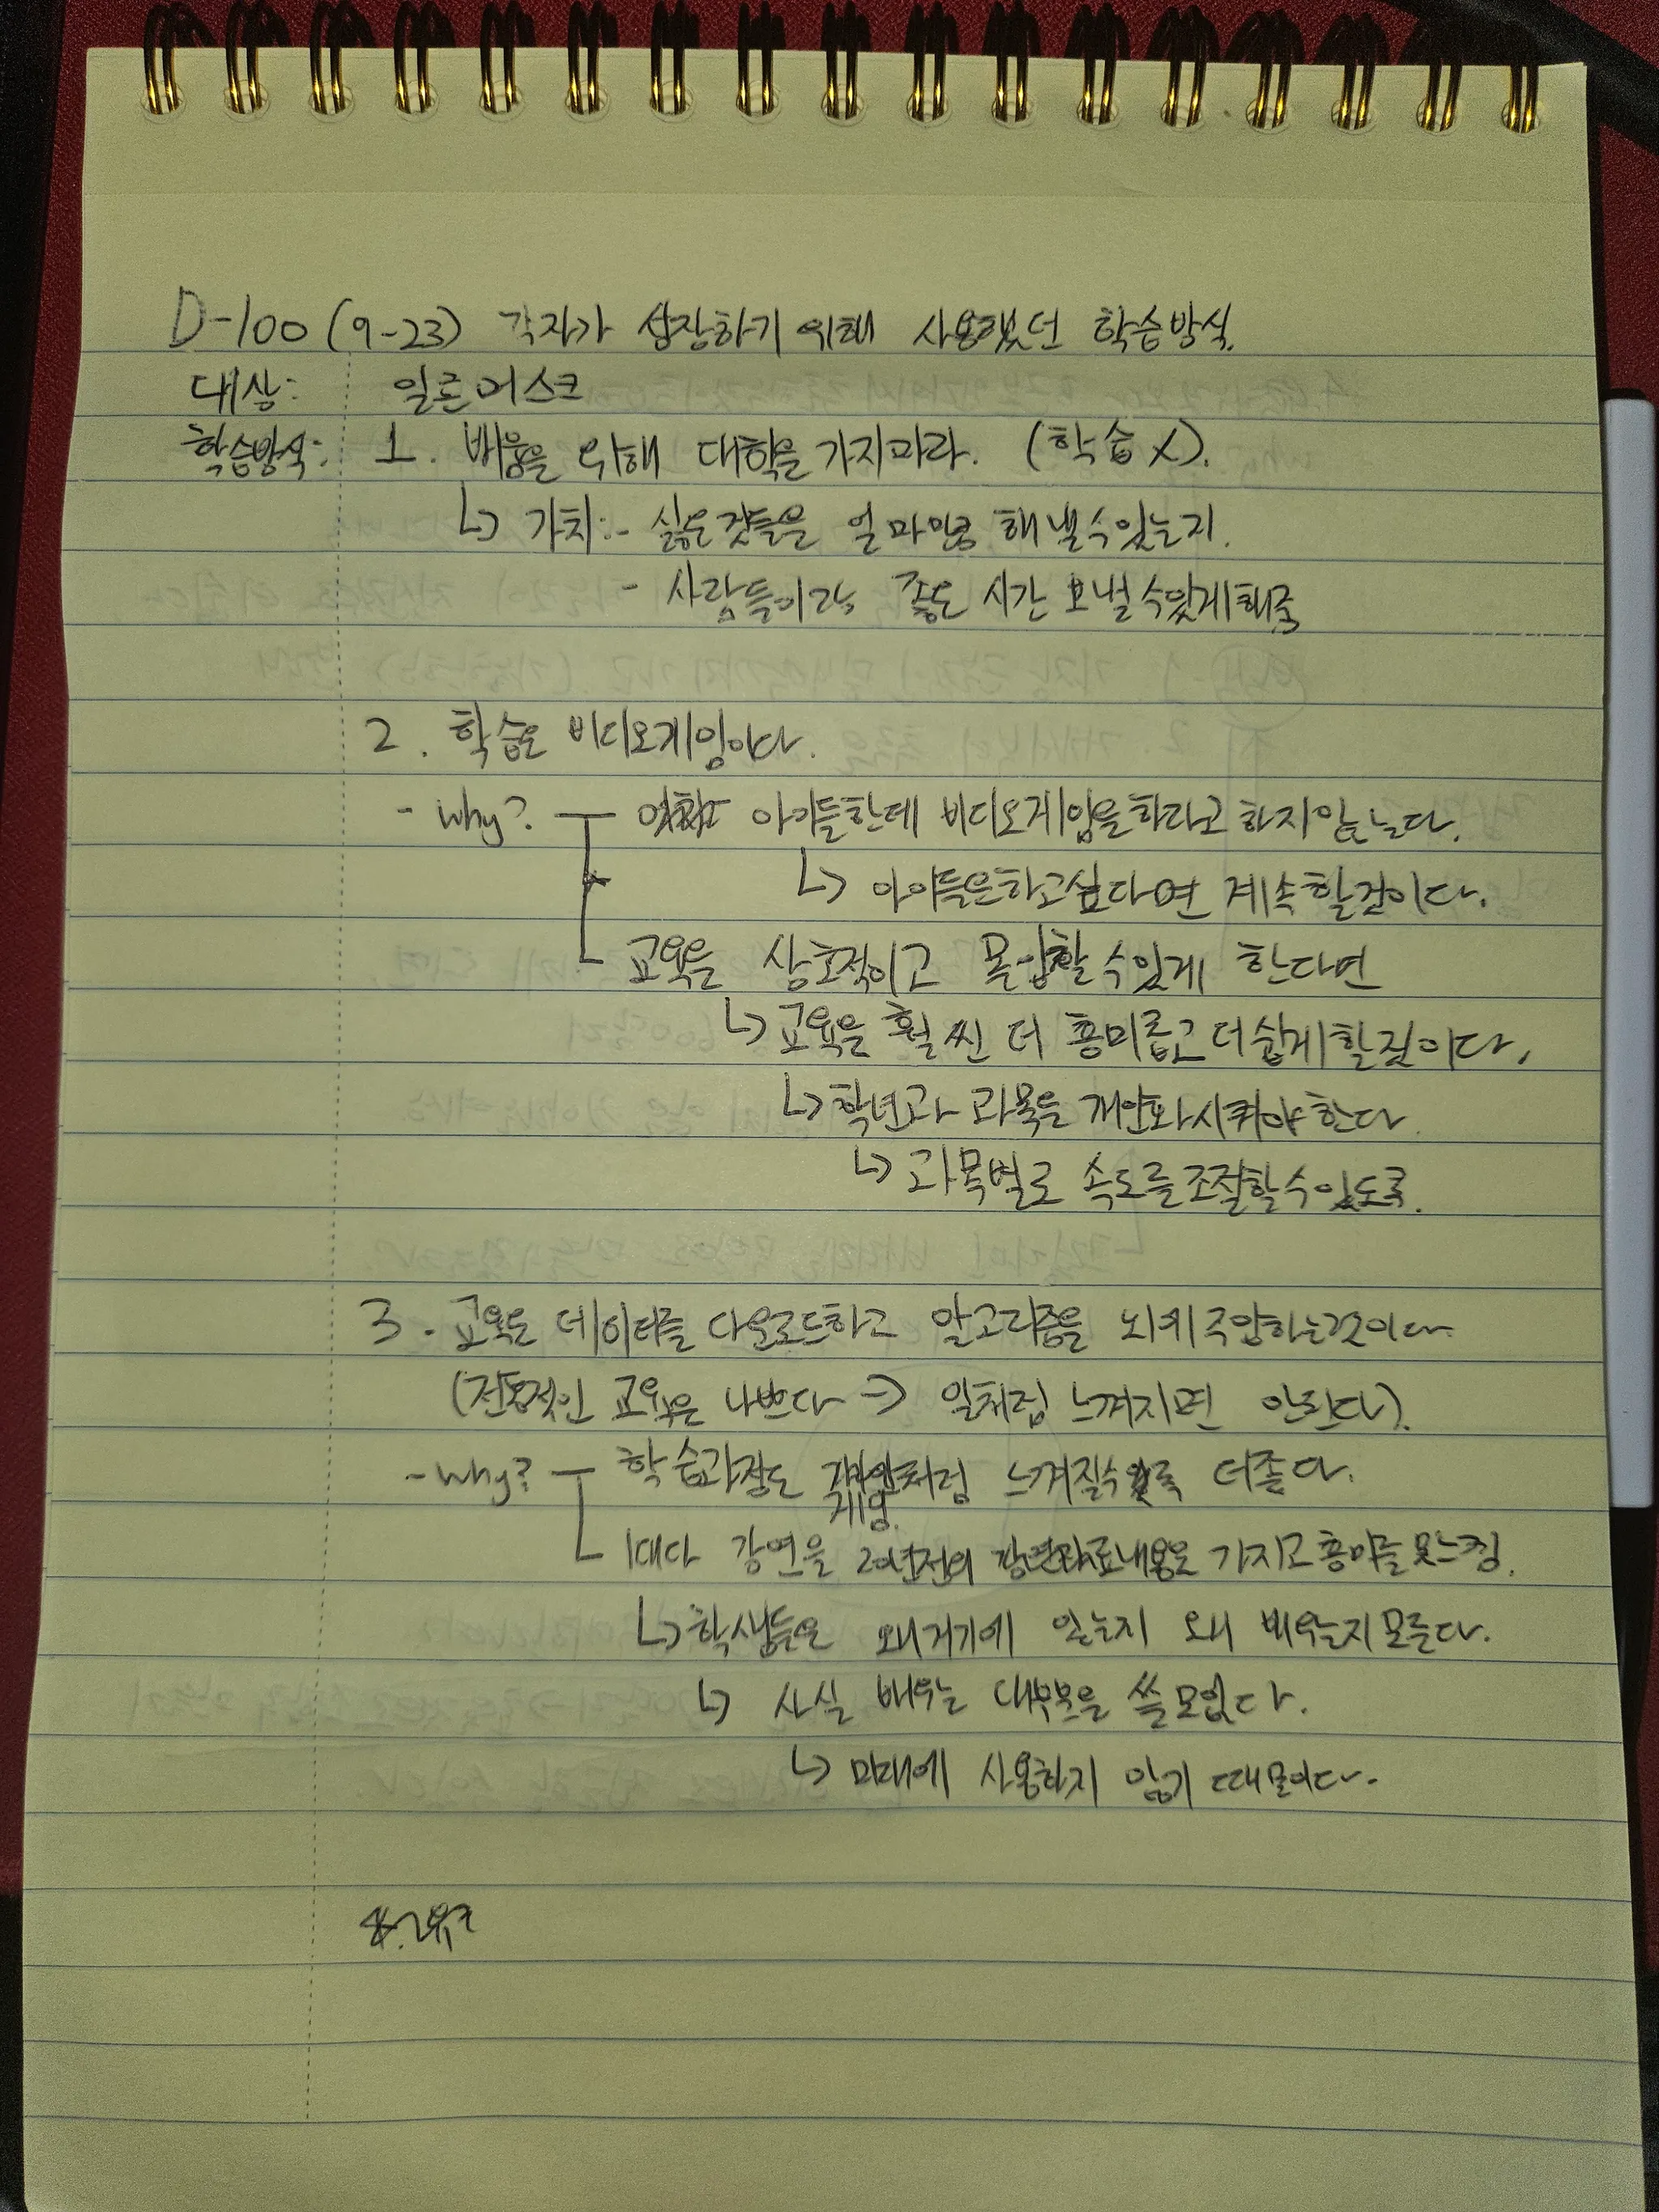 D-100 (9-23) 각자가 성장하기 위해 사용했던 학습방식.
대상: 일론머스크
학습방식: 1. 배움을 위해 대학을 가지마라. (학습 X).
↳ 가치:- 싫은것들을 얼마만큼 해낼수있는지.
- 사람들이랑 좋은 시간 보낼수있게해줌
2. 학습은 비디오게임이다.
- why? 아이들한데 비디오게임을하라고 하지않는다.
↳ 아이들은하고싶다면 계속할것이다.
교육을 상호적이고 몰입할수있게 한다면
↳ 교육을 훨씬 더 흥미롭고 더쉽게할것이다.
↳ 학년과 과목을 개인화시켜야한다.
↳ 과목별로 속도를조절할수있도록.
3. 교육은 데이터를 다운로드하고 알고리즘을 뇌에 하는것이다.
(전통적인 교육은 나쁘다 → 일처럼 느껴지면 안된다).
- why? 학습과정도 게임처럼 느껴질수 더좋다.
강연을 20년전의 가지고 흥미를못느낌.
↳ 학생들은 왜거기에 있는지 왜 배우는지모른다.
↳ 사실 배우는 대부분은 쓸모없다.
↳ 미래에 사용하지 않기 때문이다.